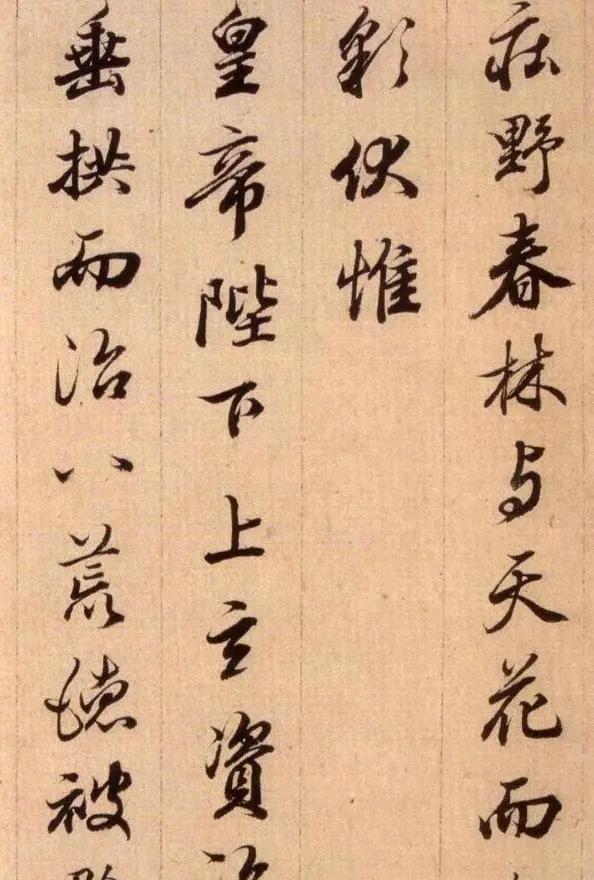 庄野春林与天花而
彩伏惟
皇帝陛下上玄資
垂拱而治八荒德被